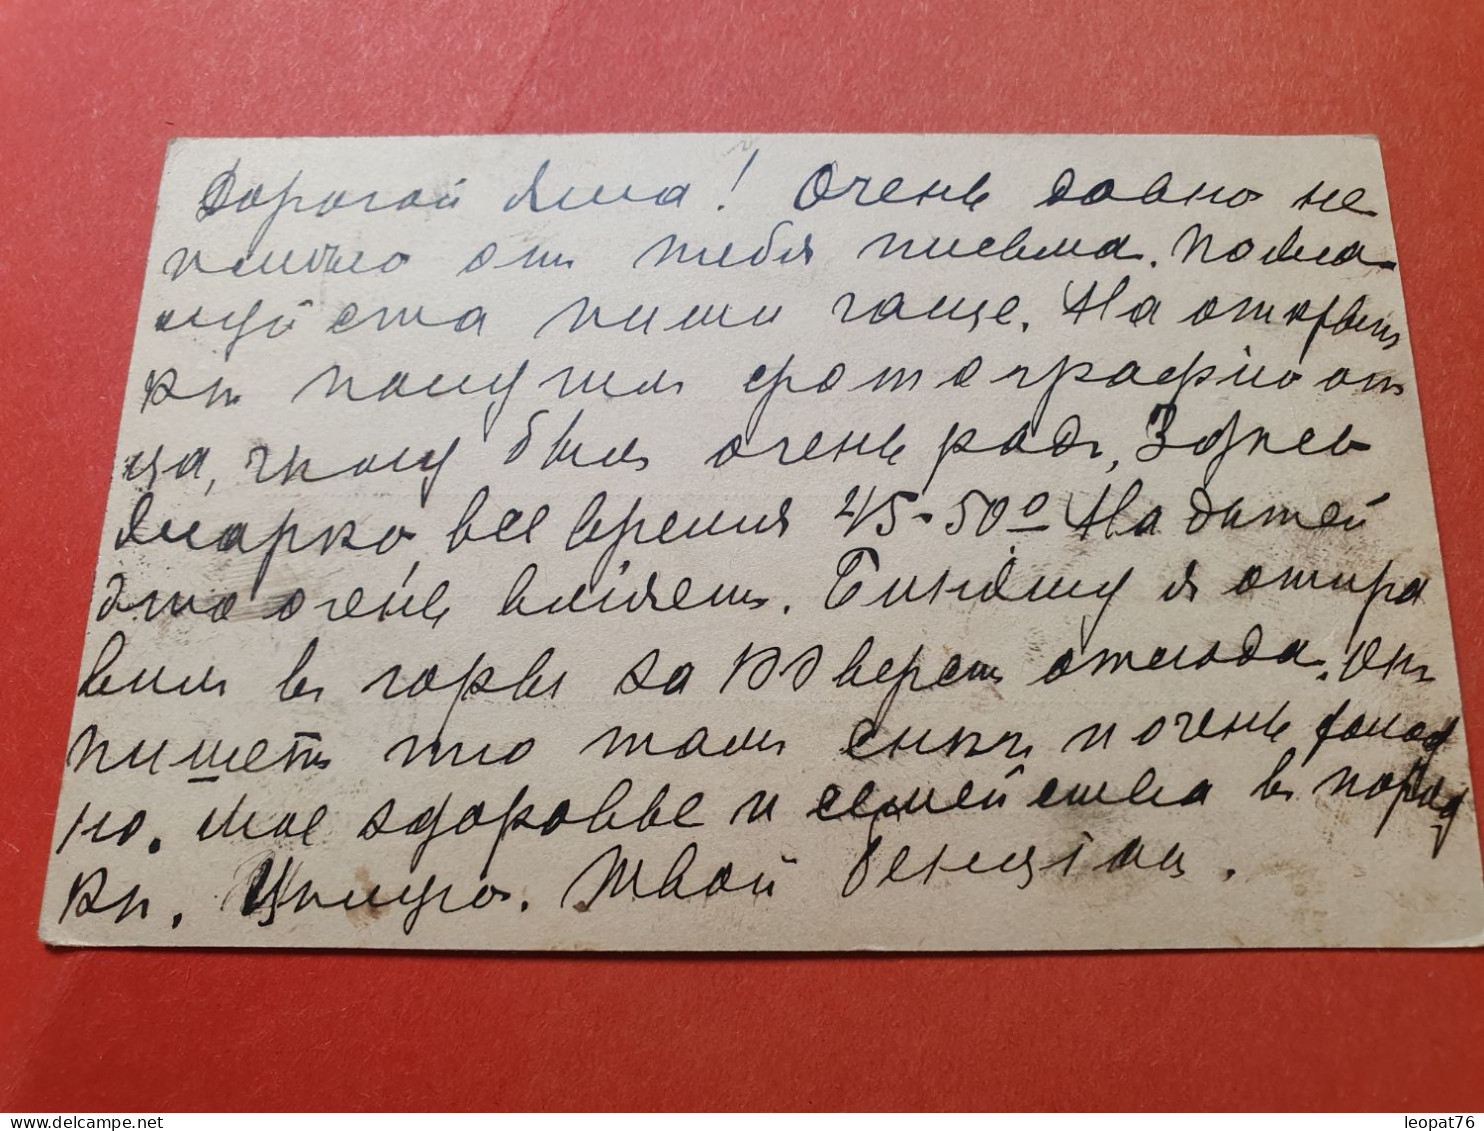 Дорогой Яша! Очень давно не
имею от тебя письма. Пожал
уйста пиши чаще. На открыт
ки получил фотографию от
ца, чему был очень рад, Здесь
жарко, все время 45-50º На детей
это очень влияет. я отпра
вил в горы за верст отсюда. Он
пишет что там снег и очень холод
но. Мое здоровье и семейства в поряд
ке. Целую. Твой
leopat76
delcampe.net